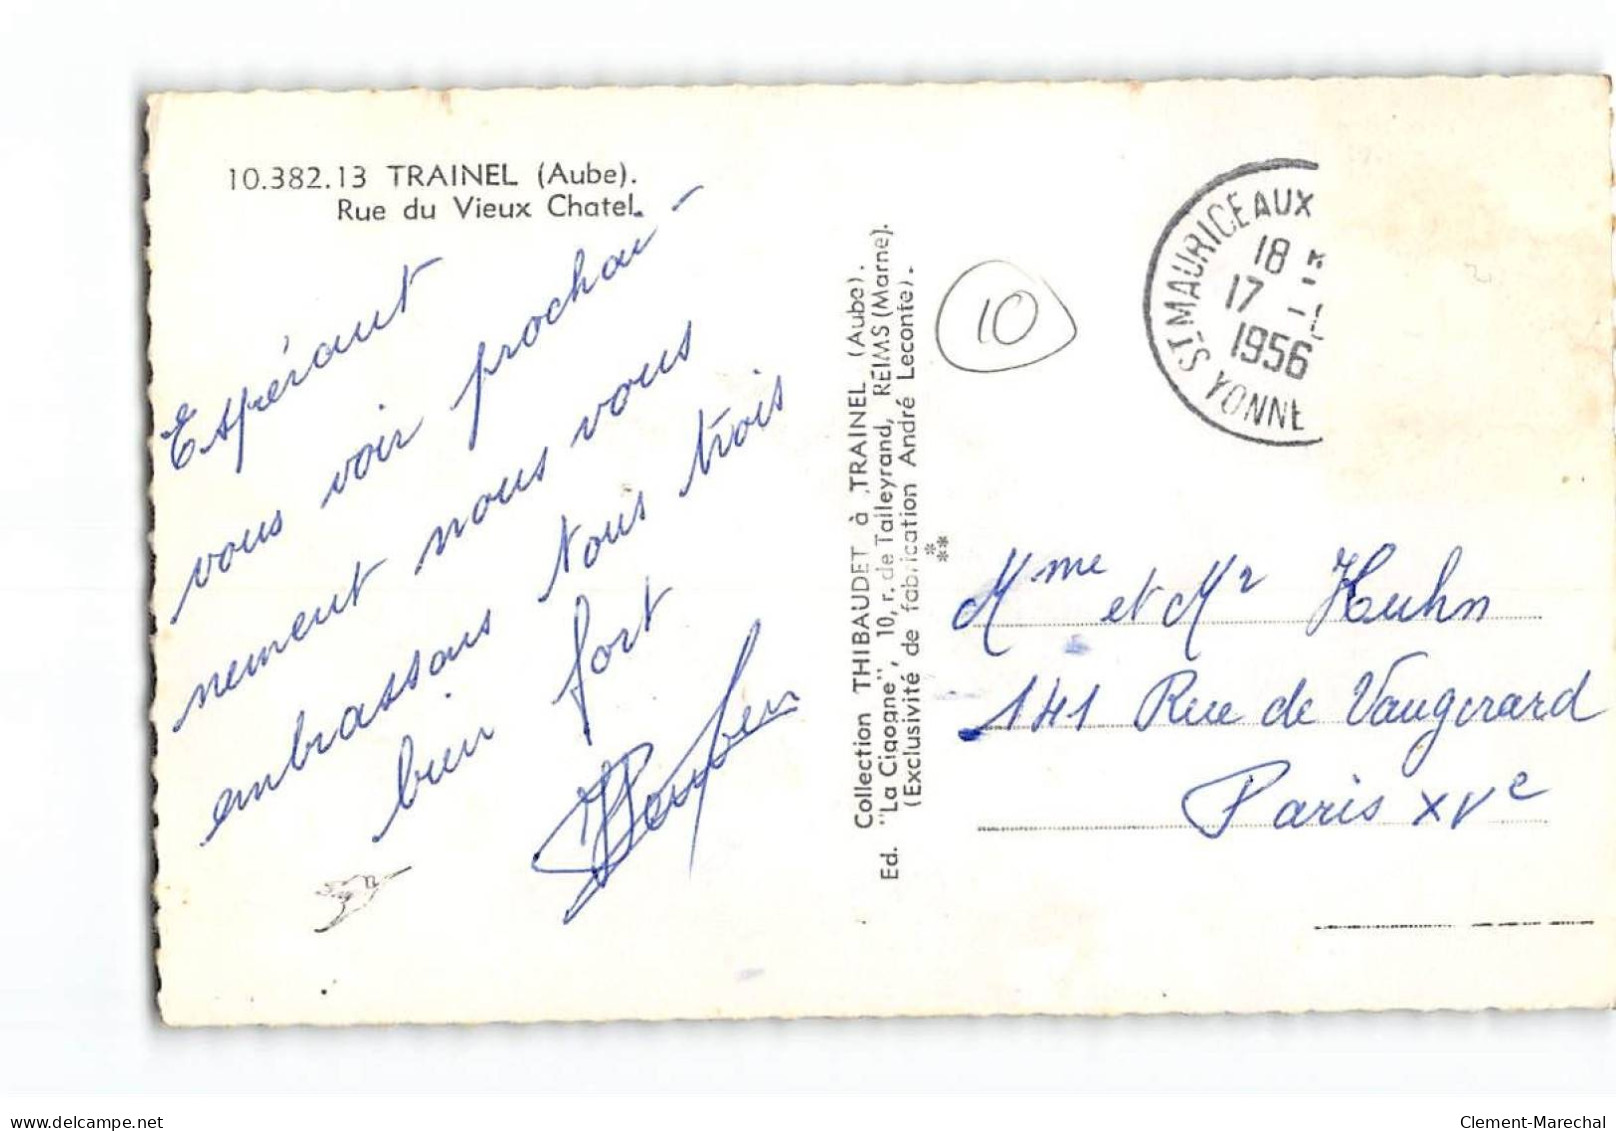 10.382.13 TRAINEL (Aube).
Rue du Vieux Chatel.
Espérant
vous voir prochai-
nement nous vous
embrassons tous trois
bien fort
Collection THIBAUDET à TRAINEL (Aube).
Ed. "La Cigogne", 10, r. de Talleyrand, REIMS (Marne).
(Exclusivité de fabrication André Leconte).
***
10
ST MAURICE AUX
18
17 -
1956
YONNE
Mme et Mr Huhn
141 Rue de Vaugirard
Paris XVe
delcampe.net
Clement-Marechal